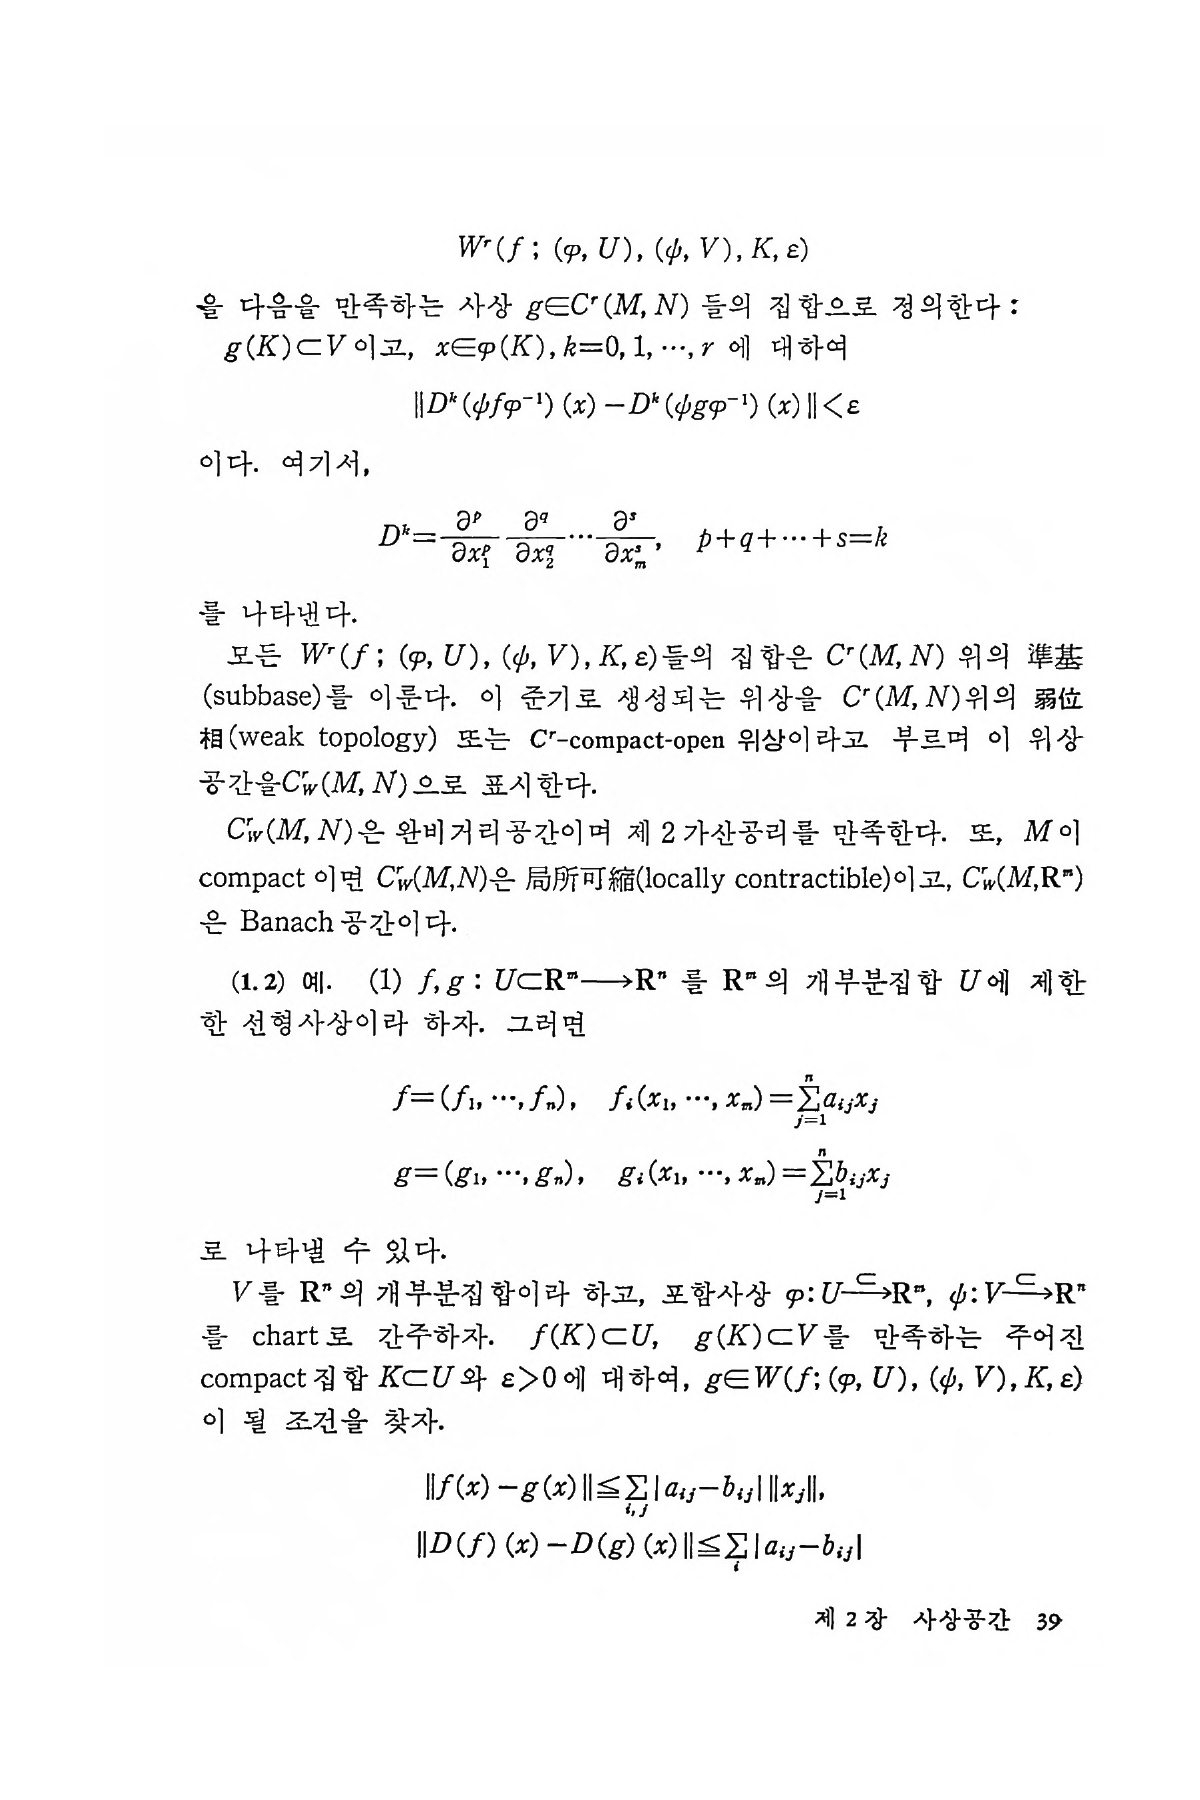 Wʳ(f ; (φ, U), (ψ, V), K, ε)
을 다음을 만족하는 사상 g∈Cʳ(M, N) 들의 집합으로 정의한다 :
g(K)⊂V이고, x∈φ(K), k=0, 1, ⋯, r 에 대하여
‖Dᵏ(ψfφ⁻¹) (x) −Dᵏ(ψgφ⁻¹) (x)‖<ε
이다. 여기서,
Dᵏ=∂ᵖ/∂x₁ᵖ ∂^q/∂x₂^q ⋯ ∂ˢ/∂x_mˢ, p+q+⋯+s=k
를 나타낸다.
모든 Wʳ(f ; (φ, U), (ψ, V), K, ε)들의 집합은 Cʳ(M, N) 위의 準基
(subbase)를 이룬다. 이 준기로 생성되는 위상을 Cʳ(M, N)위의 弱位
相(weak topology) 또는 Cʳ-compact-open 위상이라고 부르며 이 위상
공간을C_Wʳ(M, N)으로 표시한다.
C_Wʳ(M, N)은 완비거리공간이며 제 2 가산공리를 만족한다. 또, M이
compact 이면 C_Wʳ(M,N)은 局所可縮(locally contractible)이고, C_Wʳ(M,Rᵐ)
은 Banach 공간이다.
(1. 2) 예. (1) f, g : U⊂Rᵐ⟶Rⁿ 를 Rᵐ의 개부분집합 U에 제한
한 선형사상이라 하자. 그러면
f=(f₁, ⋯, fₙ), fᵢ(x₁, ⋯, x_m)=∑_{j=1}^{n} a_{ij}x_j
g=(g₁, ⋯, gₙ), gᵢ(x₁, ⋯, x_m)=∑_{j=1}^{n} b_{ij}x_j
로 나타낼 수 있다.
V를 Rⁿ의 개부분집합이라 하고, 포함사상 φ: U—⊂→Rᵐ, ψ: V—⊂→Rⁿ
를 chart로 간주하자. f(K)⊂U, g(K)⊂V를 만족하는 주어진
compact 집합 K⊂U와 ε>0에 대하여, g∈W(f; (φ, U), (ψ, V), K, ε)
이 될 조건을 찾자.
‖f(x) −g(x)‖≦∑_{i,j}|a_{ij}−b_{ij}|‖x_j‖,
‖D(f) (x) −D(g) (x)‖≦∑_{i}|a_{ij}−b_{ij}|
제 2 장 사상공간 39